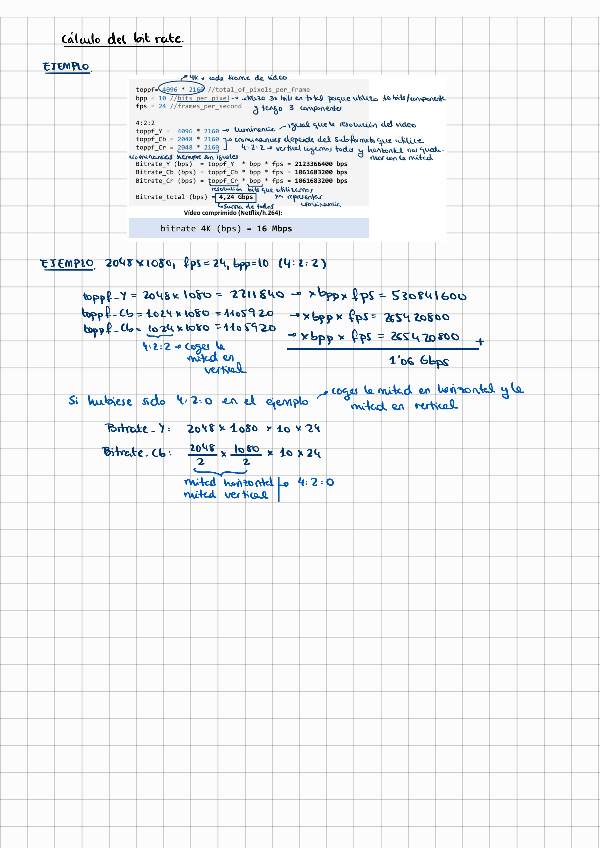 Cálculo del bit rate.
EJEMPLO.
→ 4K → cada frame de vídeo
toppf= 4096 * 2160 //total_of_pixels_per_frame
bpp = 10 //bits per pixel → utilizo 30 bits en total porque utilizo 10 bits/componente
fps = 24 //frames_per_second y tengo 3 componentes
4:2:2
toppf_Y = 4096 * 2160 → luminancia → igual que la resolución del video
toppf_Cb = 2048 * 2160 → crominancias depende del subformato que utilice
toppf_Cr = 2048 * 2160 4:2:2 → vertical cogemos todo y horizontal nos queda-
crominancias siempre son iguales mos con la mitad
Bitrate_Y (bps) = toppf_Y * bpp * fps = 2123366400 bps
Bitrate_Cb (bps) = toppf_Cb * bpp * fps = 1061683200 bps
Bitrate_Cr (bps) = toppf_Cr * bpp * fps = 1061683200 bps
resolución bits que utilizamos
Bitrate_total (bps) = 4,24 Gbps para representar
suma de todos crominancia
Vídeo comprimido (Netflix/h.264):
bitrate 4K (bps) = 16 Mbps
EJEMPLO. 2048x1080, fps=24, bpp=10 (4:2:2)
toppf_Y = 2048x1080 = 2211840 → x bpp x fps = 530841600
toppf_Cb = 1024x1080 = 1105920 → x bpp x fps = 265420800
toppf_Cb = 1024x1080 = 1105920 → x bpp x fps = 265420800 +
4:2:2 → coges la 1'06 Gbps
mitad en
vertical
Si hubiese sido 4:2:0 en el ejemplo → coges la mitad en horizontal y la
mitad en vertical
Bitrate_Y: 2048 x 1080 x 10 x 24
Bitrate_Cb: 2048/2 x 1080/2 x 10 x 24
mitad horizontal → 4:2:0
mitad vertical